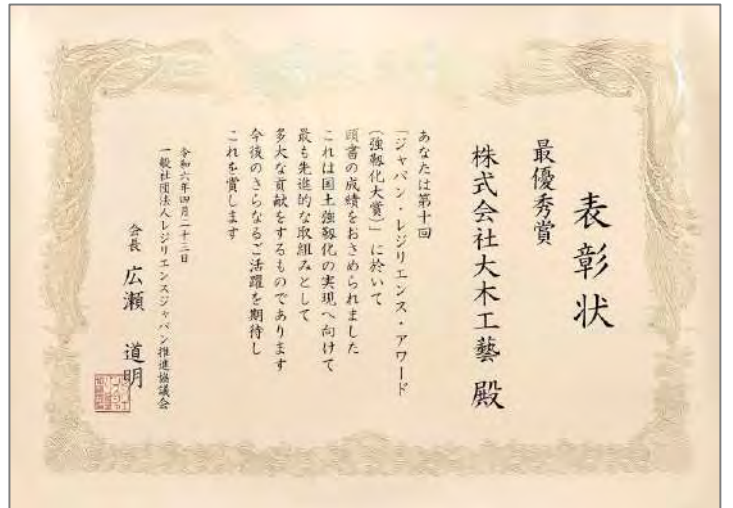 表彰状
最優秀賞
株式会社大木工藝 殿
あなたは第十回
「ジャパン・レジリエンス・アワード
(強靱化大賞)」に於いて
頭書の成績をおさめられました
これは国土強靱化の実現へ向けて
最も先進的な取組みとして
多大な貢献をするものであります
今後のさらなるご活躍を期待し
これを賞します
令和六年四月二十二日
一般社団法人レジリエンスジャパン推進協議会
会長 広瀬 道明